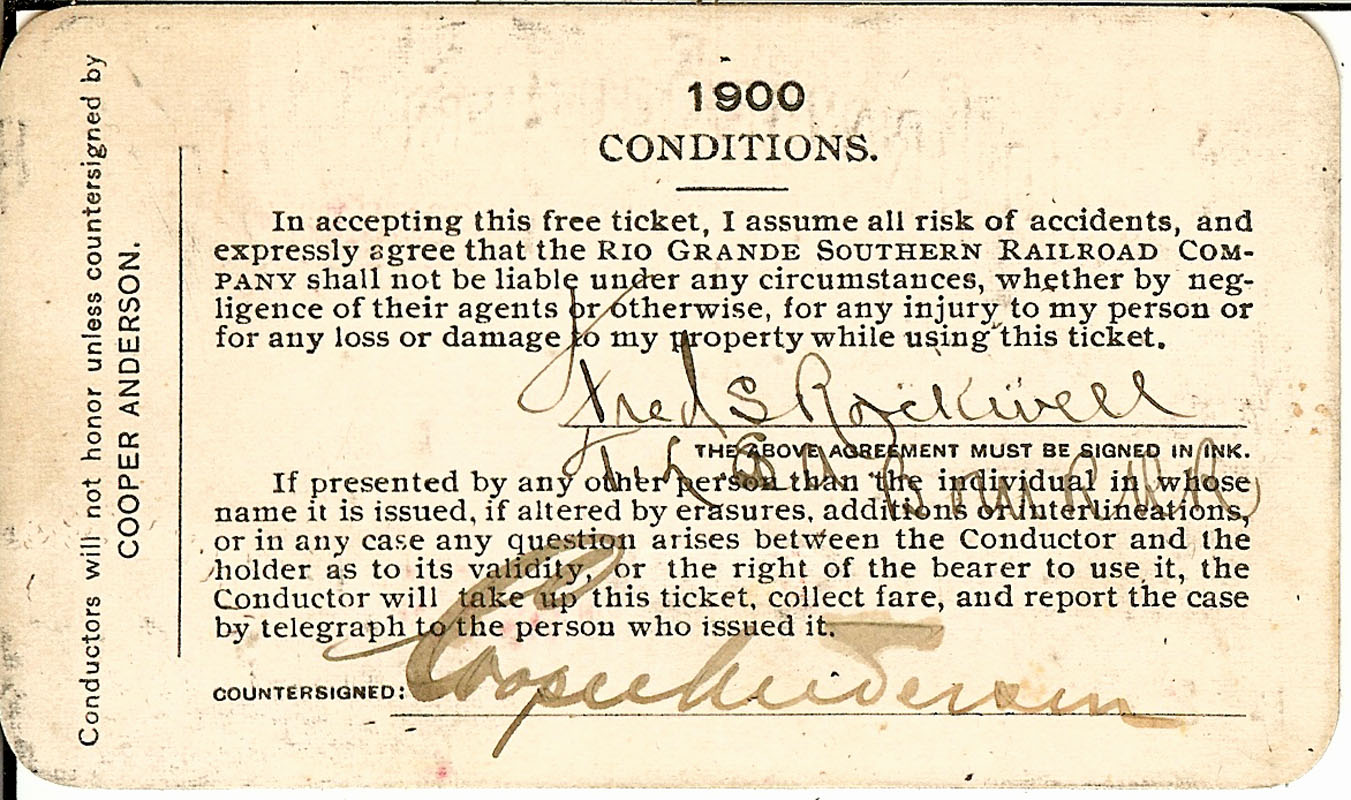 1900
CONDITIONS.
In accepting this free ticket, I assume all risk of accidents, and
expressly agree that the RIO GRANDE SOUTHERN RAILROAD COM-
PANY shall not be liable under any circumstances, whether by neg-
ligence of their agents or otherwise, for any injury to my person or
for any loss or damage to my property while using this ticket.
Fred S Rockwell
THE ABOVE AGREEMENT MUST BE SIGNED IN INK.
If presented by any other person than the individual in whose
name it is issued, if altered by erasures, additions or interlineations,
or in any case any question arises between the Conductor and the
holder as to its validity, or the right of the bearer to use it, the
Conductor will take up this ticket, collect fare, and report the case
by telegraph to the person who issued it.
COUNTERSIGNED: Cooper Anderson
Conductors will not honor unless countersigned by
COOPER ANDERSON.